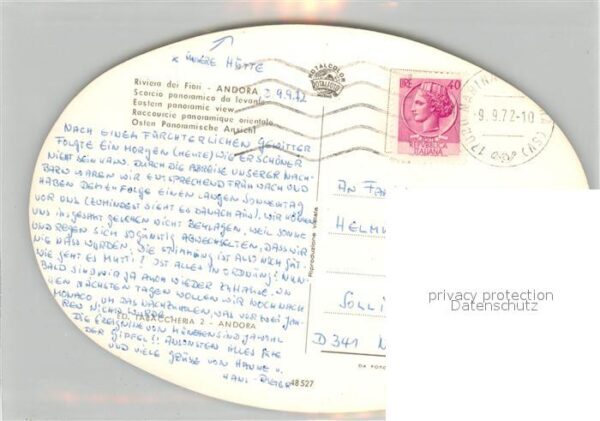 * UNSERE HÜTTE
Riviera dei Fiori - ANDORA
Scorcio panoramico da levante
Eastern panoramic view
Raccourcie panoramique orientale
Osten Panoramische Ansicht
9.9.72
NACH EINEM FÜRCHTERLICHEN GEWITTER
FOLGTE EIN MORGEN (HEUTE) WIE ER SCHÖNER
NICHT SEIN KANN. DURCH DIE ABREISE UNSERER NACH-
BARN WAREN WIR ENTSPRECHEND FRÜH WACH UND
HABEN DEMZUFOLGE EINEN LANGEN SONNENTAG
VOR UNS (ZUMINDEST SIEHT ES DANACH AUS). WIR KÖNNEN
UNS INSGESAMT GESEHEN NICHT BEKLAGEN, WEIL SONNE
UND REGEN SICH SO GÜNSTIG ABWECHSELTEN, DASS WIR
NIE NASS WURDEN. DIE STIMMUNG IST ALSO NOCH GUT.
WIE GEHT ES MUTTI? IST ALLES IN ORDNUNG? NUN
BALD SIND WIR JA AUCH WIEDER ZUHAUSE. IN
DEN NÄCHSTEN TAGEN WOLLEN WIR NOCH NACH
MONACO, UM DAS NACHZUHOLEN, WAS VOR ZWEI JAH-
REN NICHT WURDE.
ED. TABACCHERIA 2 - ANDORA
DIE EREIGNISSE VON MÜNCHEN SIND JA WOHL
DER GIPFEL!! ANSONSTEN ALLES
UND VIELE GRÜSSE VON HANNE U.
HANS-
48527
ROTALCOLOR
ROTALFOTO
Riproduzione vietata
LIRE 40
REPUBBLICA
ITALIANA
9.9.72-10
AN FA
HELMU
SOLLI
D 341 N
DA FOTO
privacy protection
Datenschutz